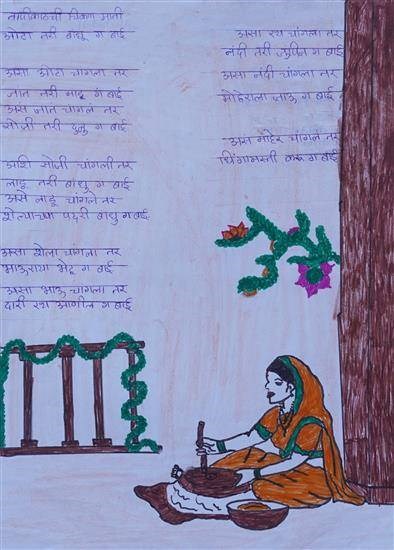 चिकण माती
ओटा तरी बांधू ग बाई
असा ओटा चांगला तर
जात तरी मांडू ग बाई
असं जात चांगलं तर
सोजी तरी दळू ग बाई
अशि सोजी चांगली तर
लाडू तरी बांधु ग बाई
असे लाडू चांगले तर
शेल्याच्या पदरी बांधु ग बाई
असा शेला चांगला तर
भाऊराया भेटू ग बाई
असा भाऊ चांगला तर
दारी रथ आणीन ग बाई
असा रथ चांगला तर
नंदी तरी जुपिन ग बाई
असा नंदी चांगला तर
माहेराला जाऊ ग बाई
असं माहेर चांगलं तर
धिंगामस्ती करू ग बाई